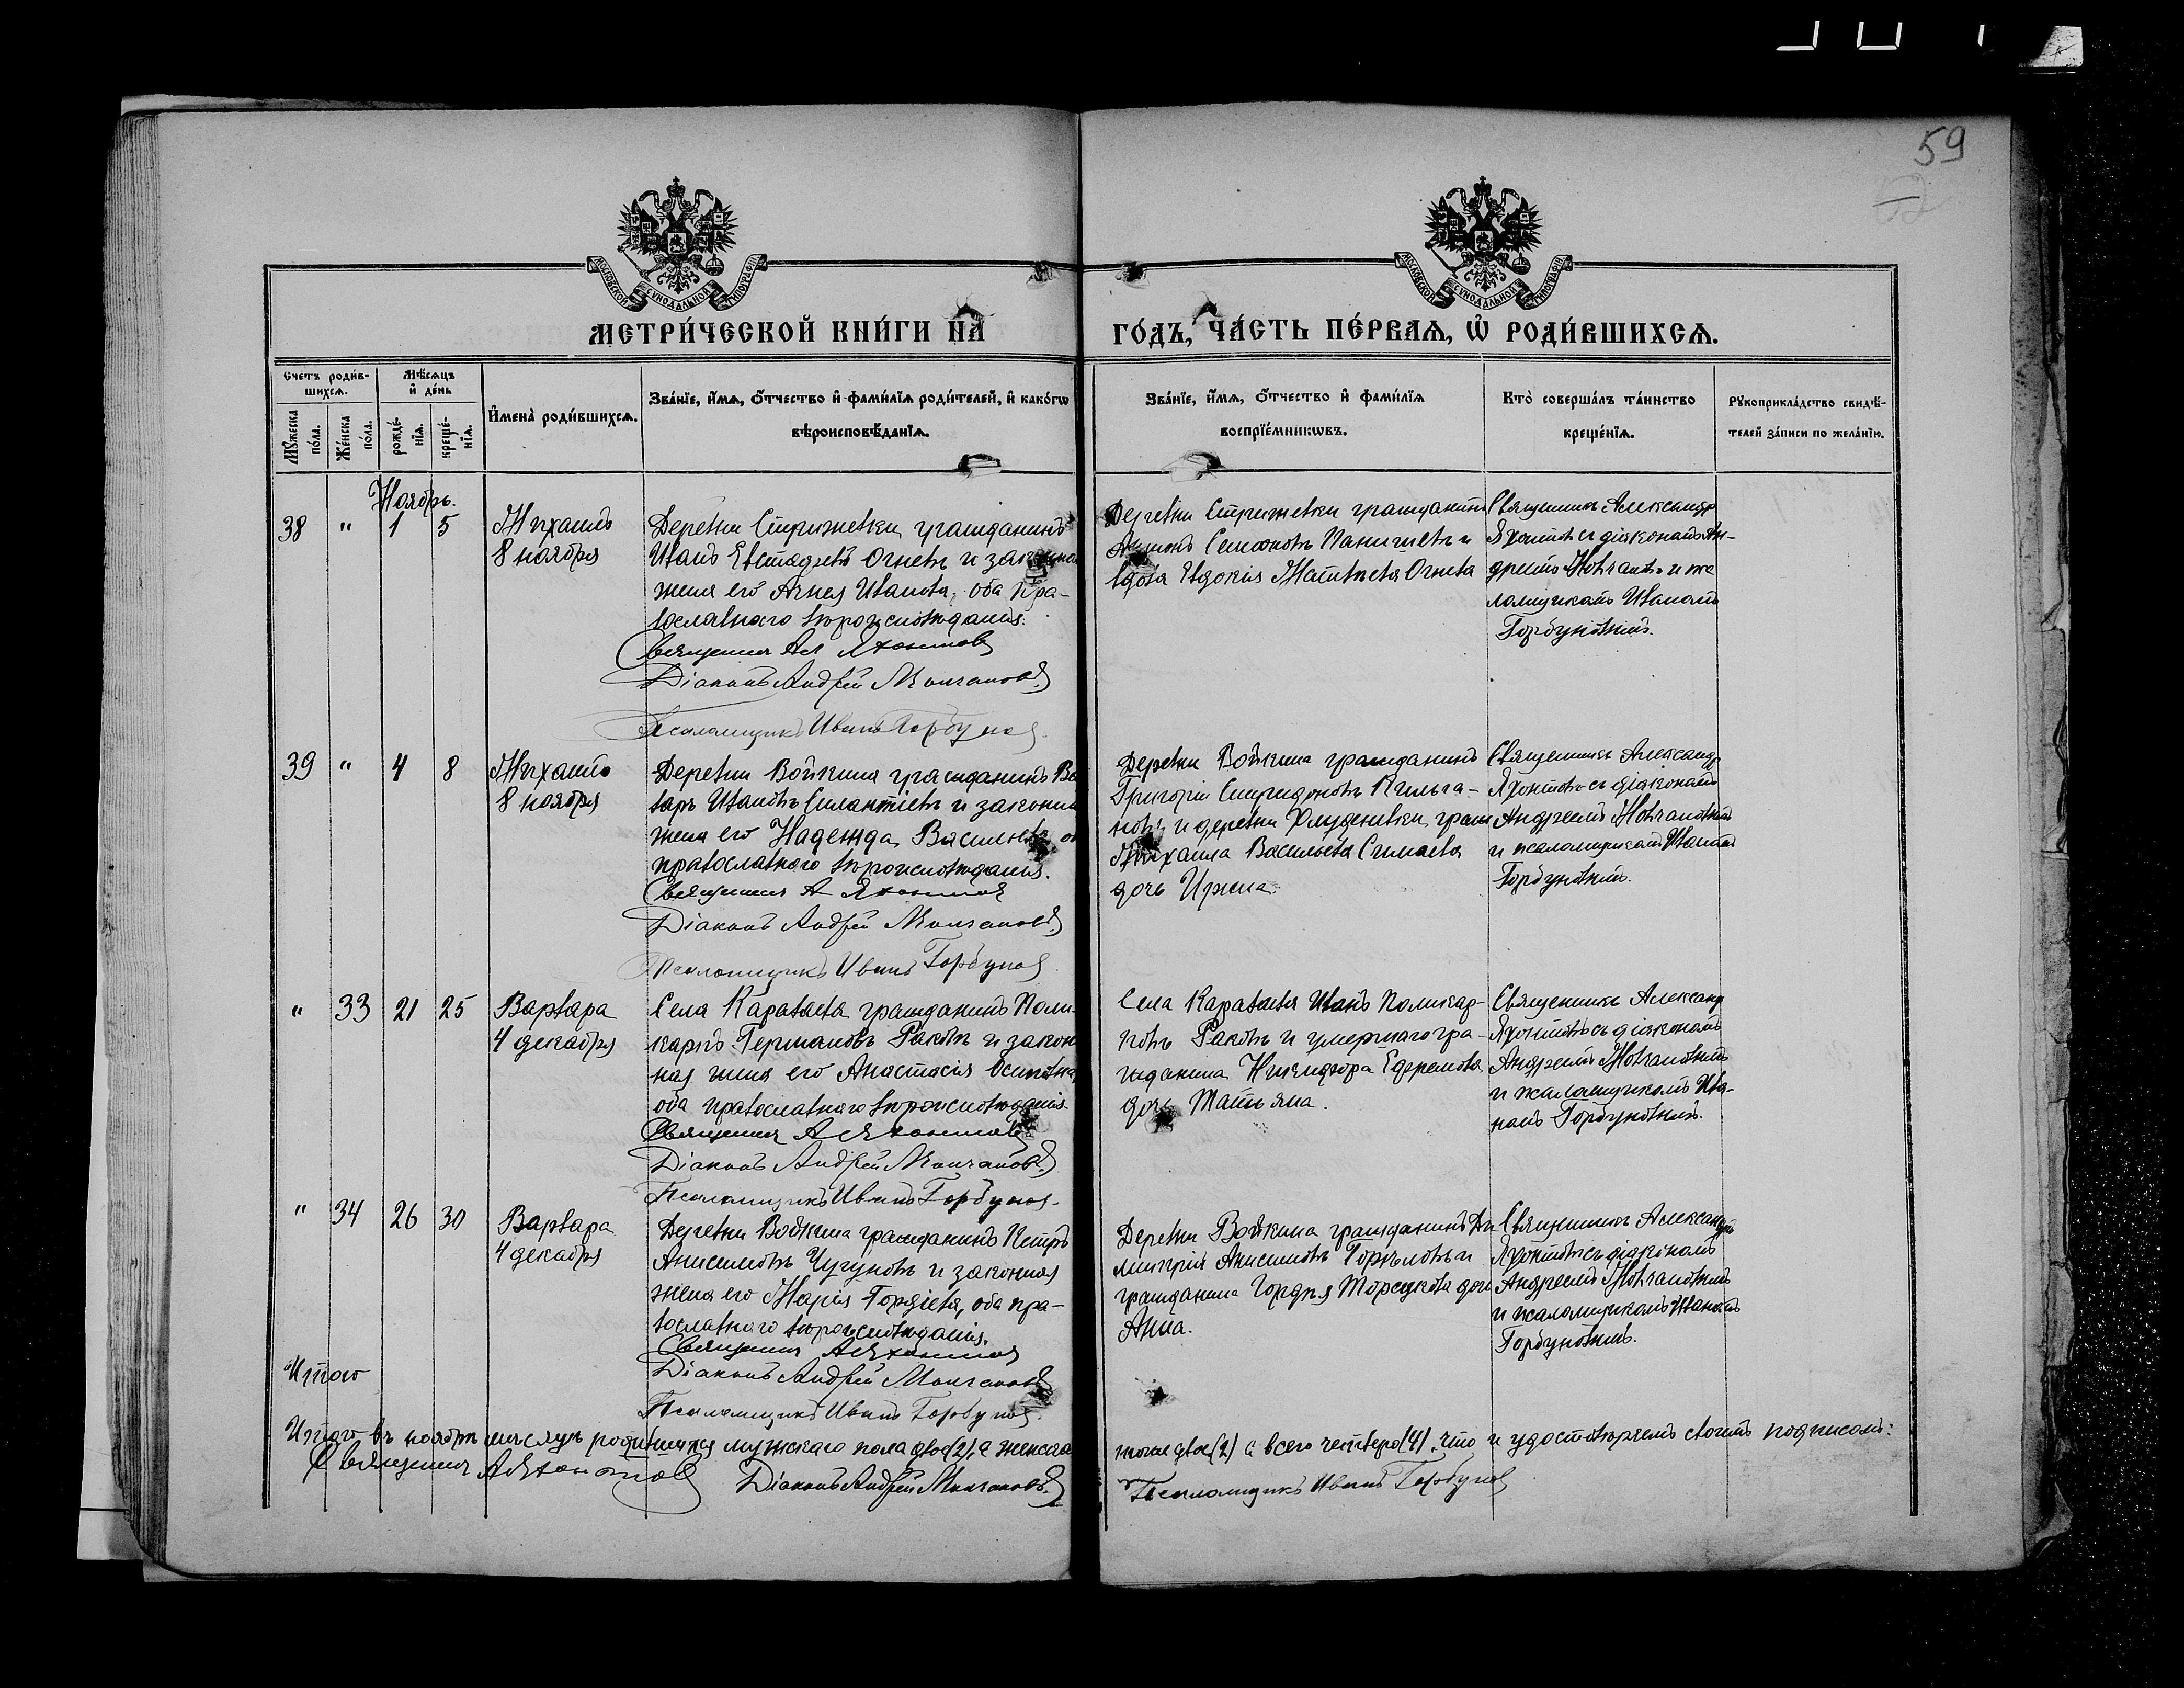 59
МОСКОВСКОЙ СѴНОДАЛЬНОЙ ТИПОГРАФІИ
МОСКОВСКОЙ СѴНОДАЛЬНОЙ ТИПОГРАФІИ
МЕТРИ́ЧЕСКОЙ КНИ́ГИ НА
ГО́ДЪ, ЧА́СТЬ ПЕ́РВАѦ, Ѡ҆ РОДИ́ВШИХСѦ.
Счетъ роди́в-
шихсѧ.
Мѣ́сѧцъ
и҆ де́нь
Мꙋ́жеска
по́ла.
Же́нска
по́ла.
рожде́-
нїѧ.
креще́-
нїѧ.
И҆мена̀ роди́вшихсѧ.
Зва́нїе, и҆́мѧ, ѻ҆́тчество и҆ фами́лїѧ роди́телей, и҆ како́гѡ
вѣроисповѣ́данїѧ.
Зва́нїе, и҆́мѧ, ѻ҆́тчество и҆ фами́лїѧ
воспрїе́мникѡвъ.
Кто̀ соверша́лъ та́инство
креще́нїѧ.
Рꙋкоприкла́дство свидѣ́-
телей за́писи по жела́нїю.
Ноябрь.
38 " 1 5
Михаилъ
8 ноября
Деревни Стрижевки гражданинъ
Иванъ Евстафіевъ Огневъ и законная
жена его Агнея Иванова, оба пра-
вославнаго вѣроисповѣданія.
Священник Ал Яхонтов
Діаконъ Андрей Молчановъ.
Псаломщикъ Иванъ Горбунов.
Деревни Стрижевки гражданинъ
Симоновъ и
вдова Евдокія Матвѣева Огнева
Священникъ Александръ
Яхонтовъ съ діакономъ Ан-
дреемъ Молчановымъ и пса
ломщикомъ Иваномъ
Горбуновымъ.
39 " 4 8
Михаилъ
8 ноября
Деревни Войкина гражданинъ
Ивановъ Силантіевъ и законная
жена его Надежда Васильева
православнаго вѣроисповѣданія.
Священник А Яхонтов
Діаконъ Андрей Молчановъ.
Псаломщикъ Иванъ Горбунов
Деревни Войкина гражданинъ
Григорій Спиридоновъ Кильга-
новъ и деревни граж
Михаила Васильева Симаева
дочь Ирина.
Священникъ Александръ
Яхонтовъ съ діакономъ
Андреемъ Молчановымъ
и псаломщикомъ Иваномъ
Горбуновымъ.
" 33 21 25
Варвара
4 декабря
Села Караваева гражданинъ Поли-
карпъ Германовъ Раковъ и закон
ная жена его Анастасія Осипова,
оба православнаго вѣроисповѣданія.
Священник А Яхонтов
Діаконъ Андрей Молчановъ.
Псаломщикъ Иванъ Горбунов.
Села Караваева Иванъ Поликар-
повъ Раковъ и умершаго гра-
жданина Никифора Ефремова
дочь Татьяна.
Священникъ Александръ
Яхонтовъ съ діакономъ
Андреемъ Молчановымъ
и псаломщикомъ Ива-
номъ Горбуновымъ.
" 34 26 30
Варвара
4 декабря
Деревни Войкина гражданинъ Петръ
Анисимовъ Чугуновъ и законная
жена его Марія Гордіева, оба пра-
вославнаго вѣроисповѣданія.
Священник А Яхонтов
Діаконъ Андрей Молчановъ
Псаломщикъ Иванъ Горбунов.
Деревни Войкина гражданинъ Ди
митрій Анисимовъ и
гражданина Гордѣя дочь
Анна.
Священникъ Александръ
Яхонтовъ съ діакономъ
Андреемъ Молчановымъ
и псаломщикомъ Иваномъ
Горбуновымъ.
Итого
Итого въ ноябрѣ мѣсяцѣ родившихся мужскаго пола двое (2), а женска
двое (2) а всего четверо (4), что и удостовѣряемъ своимъ подписомъ:
Священник А Яхонтов Діаконъ Андрей Молчановъ.
Псаломщикъ Иванъ Горбунов